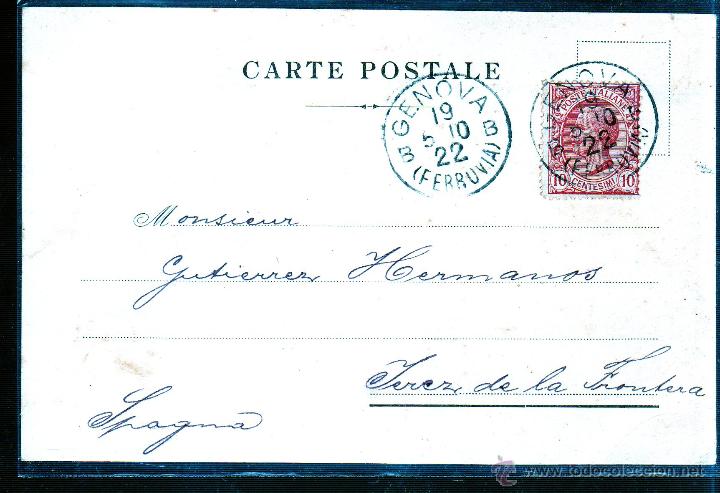 CARTE POSTALE
GENOVA
19
5 10
22
B B
(FERRUVIA)
GENOVA
19
5 10
22
B
POSTE ITALIANE
10 CENTESIMI 10
Monsieur
Gutierrez Hermanos
Jerez de la Frontera
Spagna
todocoleccion
www.todocoleccion.net